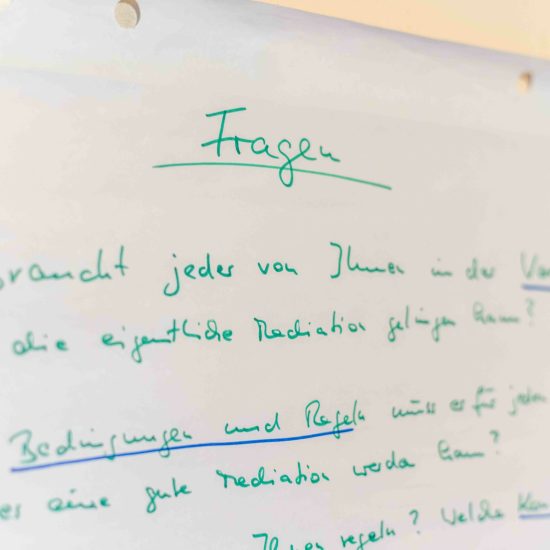 Fragen
braucht jeder von Ihnen in der
die eigentliche Mediation gelingen kann?
Bedingungen und Regeln muss es für jeden
es eine gute Mediation werden kann?
Ihnen regeln? Welche